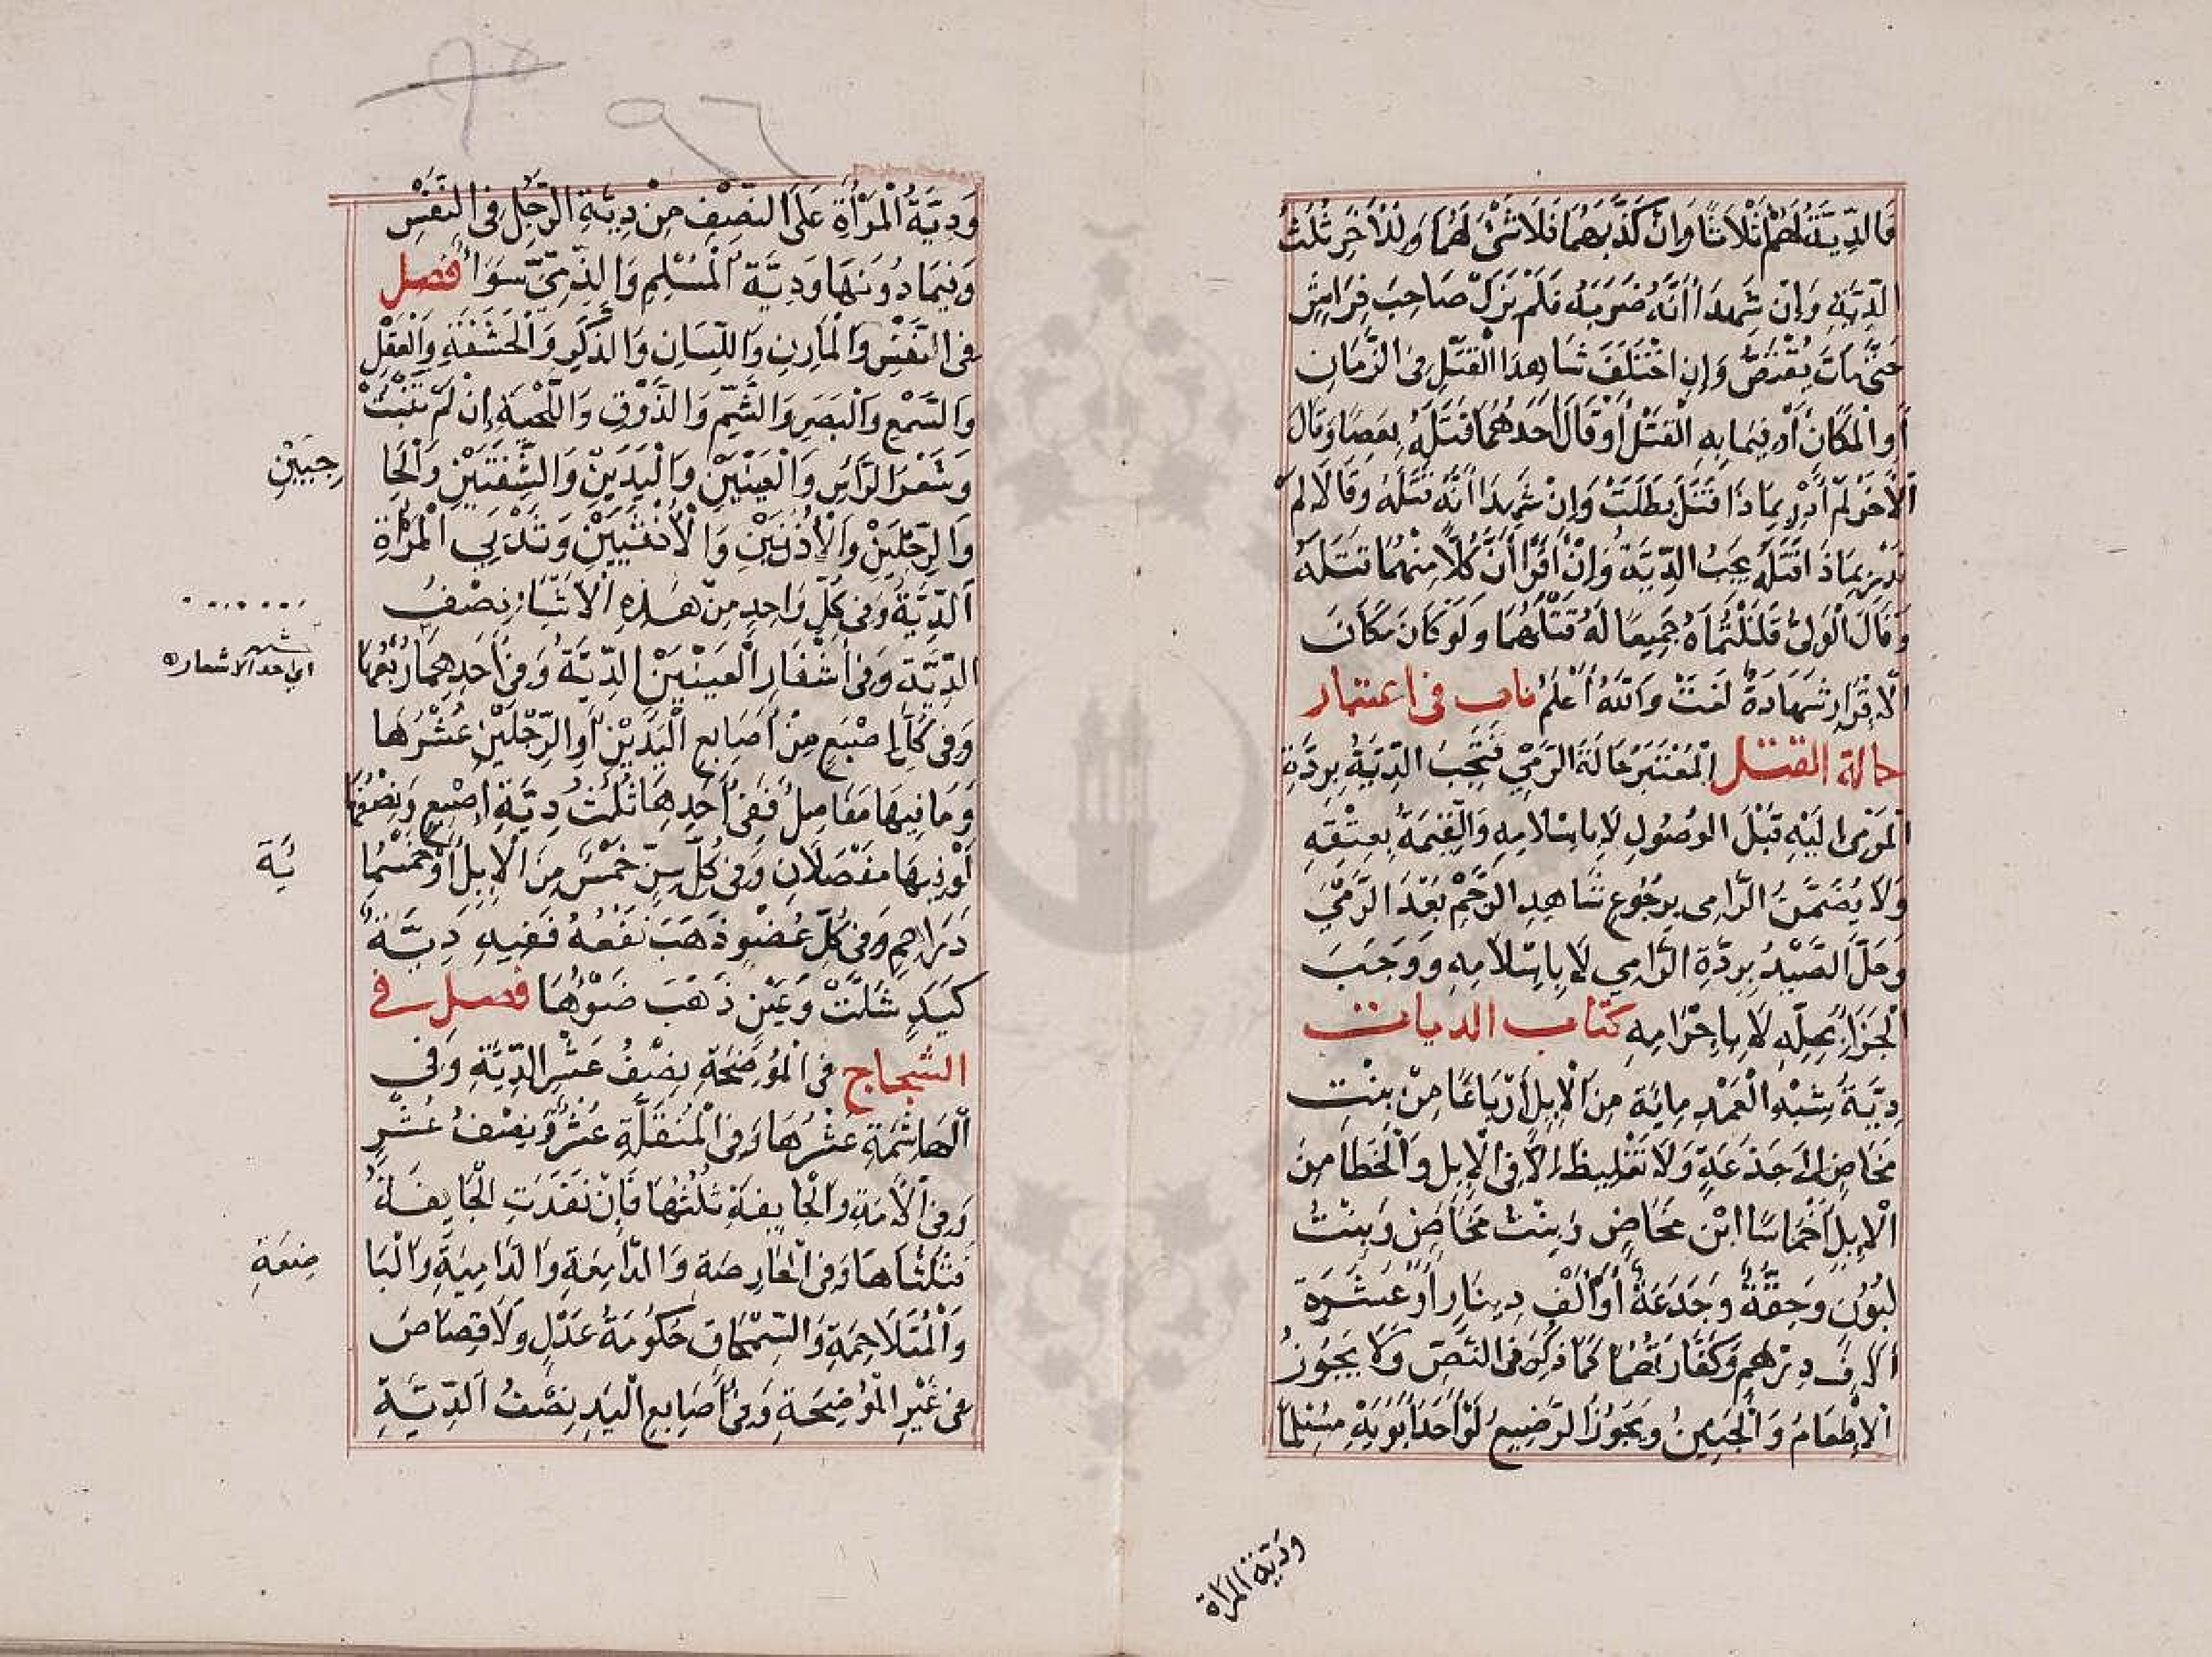 فَالدِّيَةُ لَهُمْ ثَلَاثًا وَإِنْ كَذَّبَهُمَا فَلَا شَيْءَ لَهُمَا وَلِلْآخَرِ ثُلُثُ
الدِّيَةِ وَإِنْ شَهِدَا أَنَّهُ ضَرَبَهُ فَلَمْ يَزَلْ صَاحِبَ فِرَاشٍ
حَتَّى مَاتَ يُقْتَصُّ وَإِنِ اخْتَلَفَ شَاهِدَا الْقَتْلِ فِي الزَّمَانِ
أَوِ الْمَكَانِ أَوْ فِيمَا بِهِ الْقَتْلُ أَوْ قَالَ أَحَدُهُمَا قَتَلَهُ بِعَصًا وَقَالَ
الْآخَرُ لَمْ أَدْرِ بِمَاذَا قَتَلَ بَطَلَتْ وَإِنْ شَهِدَا أَنَّهُ قَتَلَهُ وَقَالَا لَمْ
نَدْرِ بِمَاذَا قَتَلَهُ يَجِبُ الدِّيَةُ وَإِنْ أَقَرَّا أَنَّ كُلًّا مِنْهُمَا قَتَلَهُ
وَقَالَ الْوَلِيُّ قَتَلْتُمَاهُ جَمِيعًا لَهُ قَتْلُهُمَا وَلَوْ كَانَ مَكَانَ
الْإِقْرَارِ شَهَادَةٌ لَغَتْ وَاللهُ أَعْلَمُ باب في اعتبار
حالة القتل الْمُعْتَبَرُ حَالَةُ الرَّمْيِ فَتَجِبُ الدِّيَةُ بِرِدَّةِ
الْمَرْمِيِّ إِلَيْهِ قَبْلَ الْوُصُولِ لَا بِإِسْلَامِهِ وَالْقِيمَةُ بِعِتْقِهِ
وَلَا يُضَمَّنُ الرَّامِي بِرُجُوعِ شَاهِدِ الرَّجْمِ بَعْدَ الرَّمْيِ
وَحَلَّ الصَّيْدُ بِرِدَّةِ الرَّامِي لَا بِإِسْلَامِهِ وَوَجَبَ
الْجَزَاءُ بِحِلِّهِ لَا بِإِحْرَامِهِ كتاب الديات
دِيَةُ شِبْهِ الْعَمْدِ مِائَةٌ مِنَ الْإِبِلِ أَرْبَاعًا مِنْ بِنْتِ
مَخَاضٍ إِلَى جَذَعَةٍ وَلَا تَغْلِيظَ إِلَّا فِي الْإِبِلِ وَالْخَطَأ مِنَ
الْإِبِلِ أَخْمَاسًا ابْنُ مَخَاضٍ وَبِنْتُ مَخَاضٍ وَبِنْتُ
لَبُونٍ وَحِقَّةٌ وَجَذَعَةٌ أَوْ أَلْفُ دِينَارٍ أَوْ عَشَرَةُ
آلَافِ دِرْهَمٍ وَكَفَّارَتُهُمَا كَمَا ذُكِرَ فِي النَّصِّ وَلَا يَجُوزُ
الْإِطْعَامُ وَالْجَنِينُ وَيَجُوزُ الرَّضِيعُ لَوْ أَحَدُ أَبَوَيْهِ مُسْلِمًا
ودية المراة
٩٥
٩٦
وَدِيَةُ الْمَرْأَةِ عَلَى النِّصْفِ مِنْ دِيَةِ الرَّجُلِ فِي النَّفْسِ
وَفِيمَا دُونَهَا وَدِيَةُ الْمُسْلِمِ وَالذِّمِّيِّ سَوَاءٌ فصل
فِي النَّفْسِ وَالْمَارِنِ وَاللِّسَانِ وَالذَّكَرِ وَالْحَشَفَةِ وَالْعَقْلِ
وَالسَّمْعِ وَالْبَصَرِ وَالشَّمِّ وَالذَّوْقِ وَاللِّحْيَةِ إِنْ لَمْ تَنْبُتْ
وَشَعْرِ الرَّأْسِ وَالْعَيْنَيْنِ وَالْيَدَيْنِ وَالشَّفَتَيْنِ وَالْحَا
جِبَيْنِ
وَالرِّجْلَيْنِ وَالْأُذُنَيْنِ وَالْأُنْثَيَيْنِ وَثَدْيَيِ الْمَرْأَةِ
الدِّيَةُ وَفِي كُلِّ وَاحِدٍ مِنْ هَذِهِ الْأَشْيَاءِ نِصْفُ
الدِّيَةِ وَفِي أَشْفَارِ الْعَيْنَيْنِ الدِّيَةُ وَفِي أَحَدِهِمَا رُبُعُهَا
اي احد الاشفار
وَفِي كُلِّ إِصْبَعٍ مِنْ أَصَابِعِ الْيَدَيْنِ أَوِ الرِّجْلَيْنِ عُشْرُهَا
وَمَا فِيهَا مَفَاصِلُ فَفِي أَحَدِهَا ثُلُثُ دِيَةِ إِصْبَعٍ وَنِصْفُهَا
لَوْ فِيهَا مَفْصَلَانِ وَفِي كُلِّ سِنٍّ خَمْسٌ مِنَ الْإِبِلِ أَوْ خَمْسُمِا
ئَةِ
دَرَاهِمَ وَفِي كُلِّ عُضْوٍ ذَهَبَ نَفْعُهُ فَفِيهِ دِيَةٌ
كَيَدٍ شَلَّتْ وَعَيْنٍ ذَهَبَ ضَوْؤُهَا فصل في
الشجاج فِي الْمُوضِحَةِ نِصْفُ عُشْرِ الدِّيَةِ وَفِي
الْهَاشِمَةِ عُشْرُهَا وَفِي الْمُنَقِّلَةِ عُشْرٌ وَنِصْفُ عُشْرٍ
وَفِي الْآمَّةِ وَالْجَايِفَةِ ثُلُثُهَا فَإِنْ نَفَذَتِ الْجَايِفَةُ
فَثُلُثَاهَا وَفِي الْحَارِصَةِ وَالدَّامِعَةِ وَالدَّامِيَةِ وَالْبَا
ضِعَةِ
وَالْمُتَلَاحِمَةِ وَالسِّمْحَاقِ حُكُومَةُ عَدْلٍ وَلَا قِصَاصَ
فِي غَيْرِ الْمُوضِحَةِ وَفِي أَصَابِعِ الْيَدِ نِصْفُ الدِّيَةِ